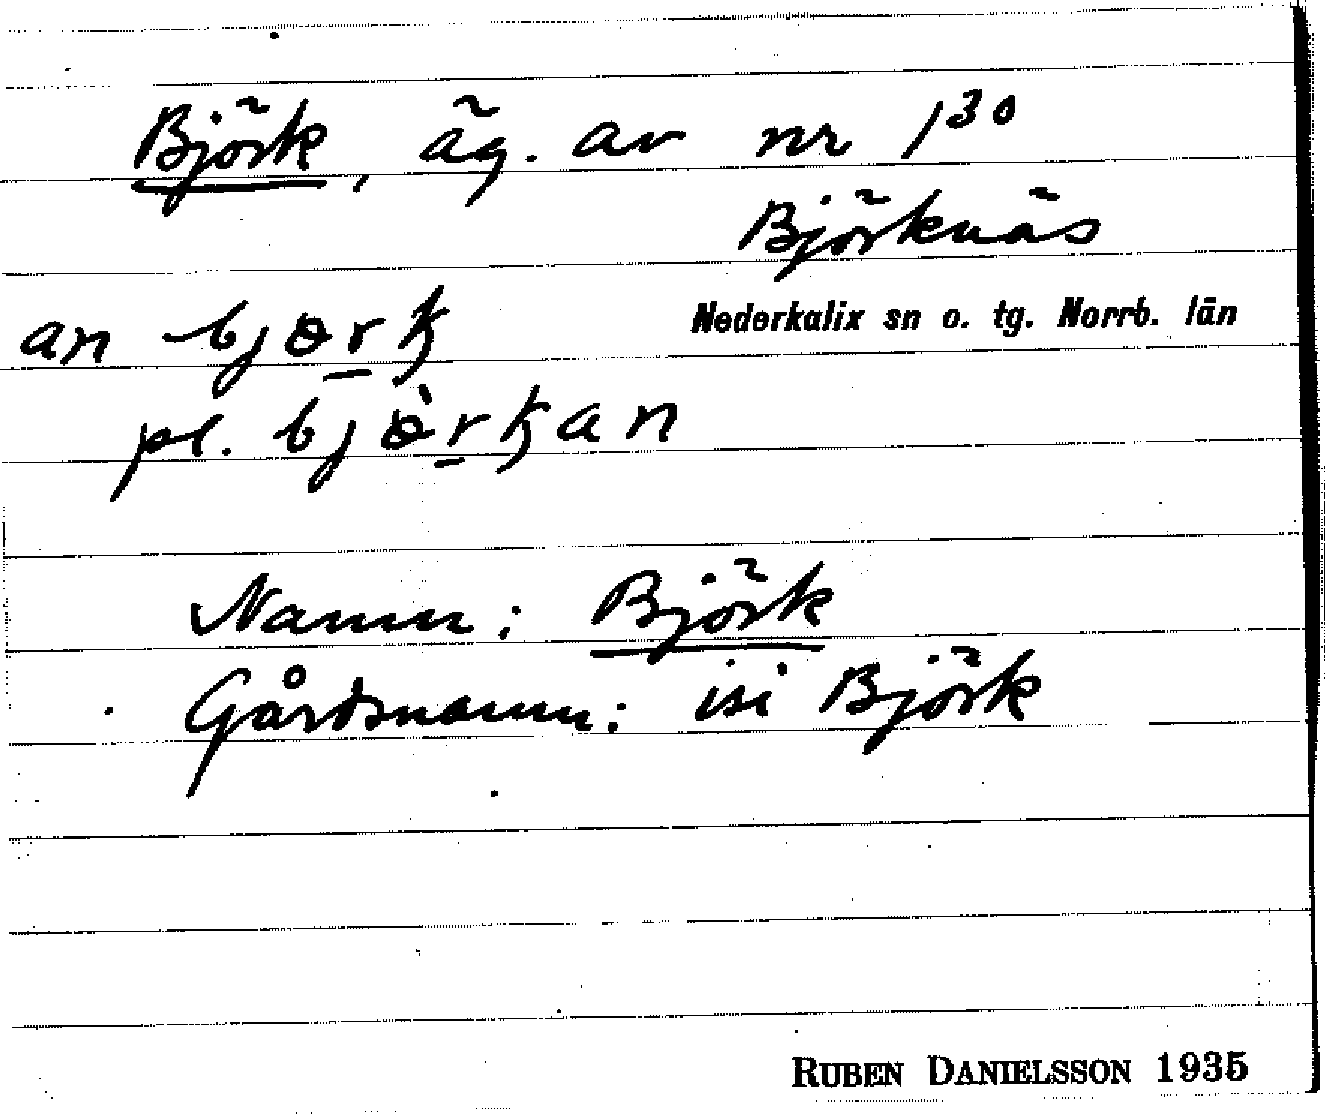 Björk, äg. av nr 1³⁰
Björknäs
Nederkalix sn o. tg. Norrb. län
an bjɵr̲ꝁ
pl. bjɵ̀r̲ꝁan
Namn: Björk
Gårdsnamn: isi Björk
RUBEN DANIELSSON 1935